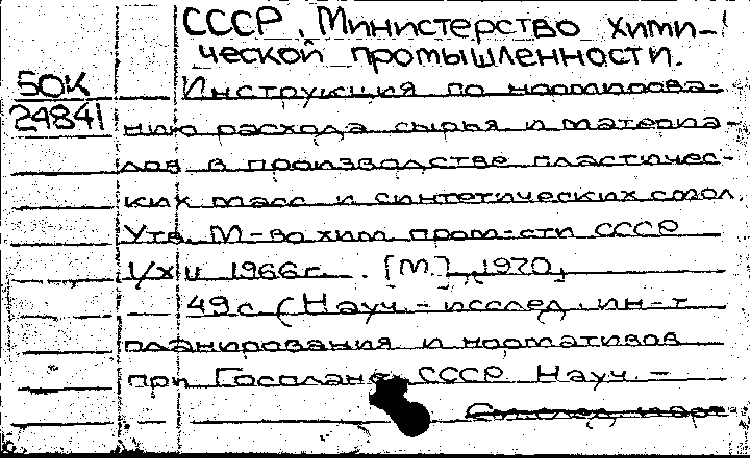 СССР. Министерство хими-
ческой промышленности.
50К
24841
Инструкция по нормирова-
нию расхода сырья и материа-
лов в производстве пластичес-
ких масс и синтетических смол.
Утв. М-во хим. пром-сти СССР
1/XII 1966г. . [М.], 1970,
49с. (Науч.-исслед. ин-т
планирования и нормативов
при Госплане СССР Науч.-
См. след. карт.